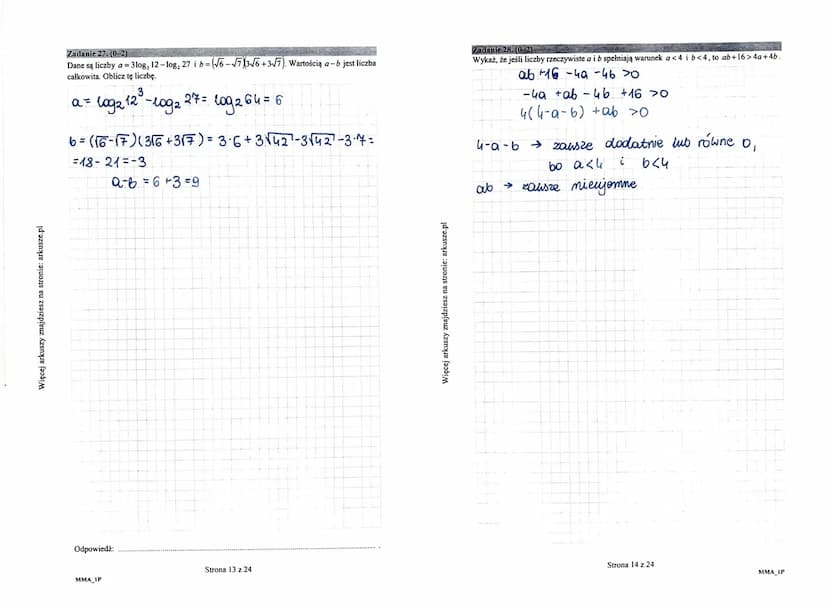 Zadanie 27. (0–2)
Dane są liczby a = 3log₂ 12 − log₂ 27 i b = (√6 − √7)(3√6 + 3√7). Wartością a − b jest liczba
całkowita. Oblicz tę liczbę.
a = log₂ 12³ - log₂ 27 = log₂ 64 = 6
b = (√6 - √7)(3√6 + 3√7) = 3·6 + 3√42 - 3√42 - 3·7 =
= 18 - 21 = -3
a-b = 6 + 3 = 9
Odpowiedź:
Strona 13 z 24
MMA_1P
Więcej arkuszy znajdziesz na stronie: arkusze.pl
Zadanie 28. (0–2)
Wykaż, że jeśli liczby rzeczywiste a i b spełniają warunek a < 4 i b < 4, to ab + 16 > 4a + 4b.
ab + 16 - 4a - 4b > 0
-4a + ab - 4b + 16 > 0
4(4-a-b) + ab > 0
4-a-b → zawsze dodatnie lub równe 0,
bo a<4 i b<4
ab → zawsze nieujemne
Strona 14 z 24
MMA_1P
Więcej arkuszy znajdziesz na stronie: arkusze.pl